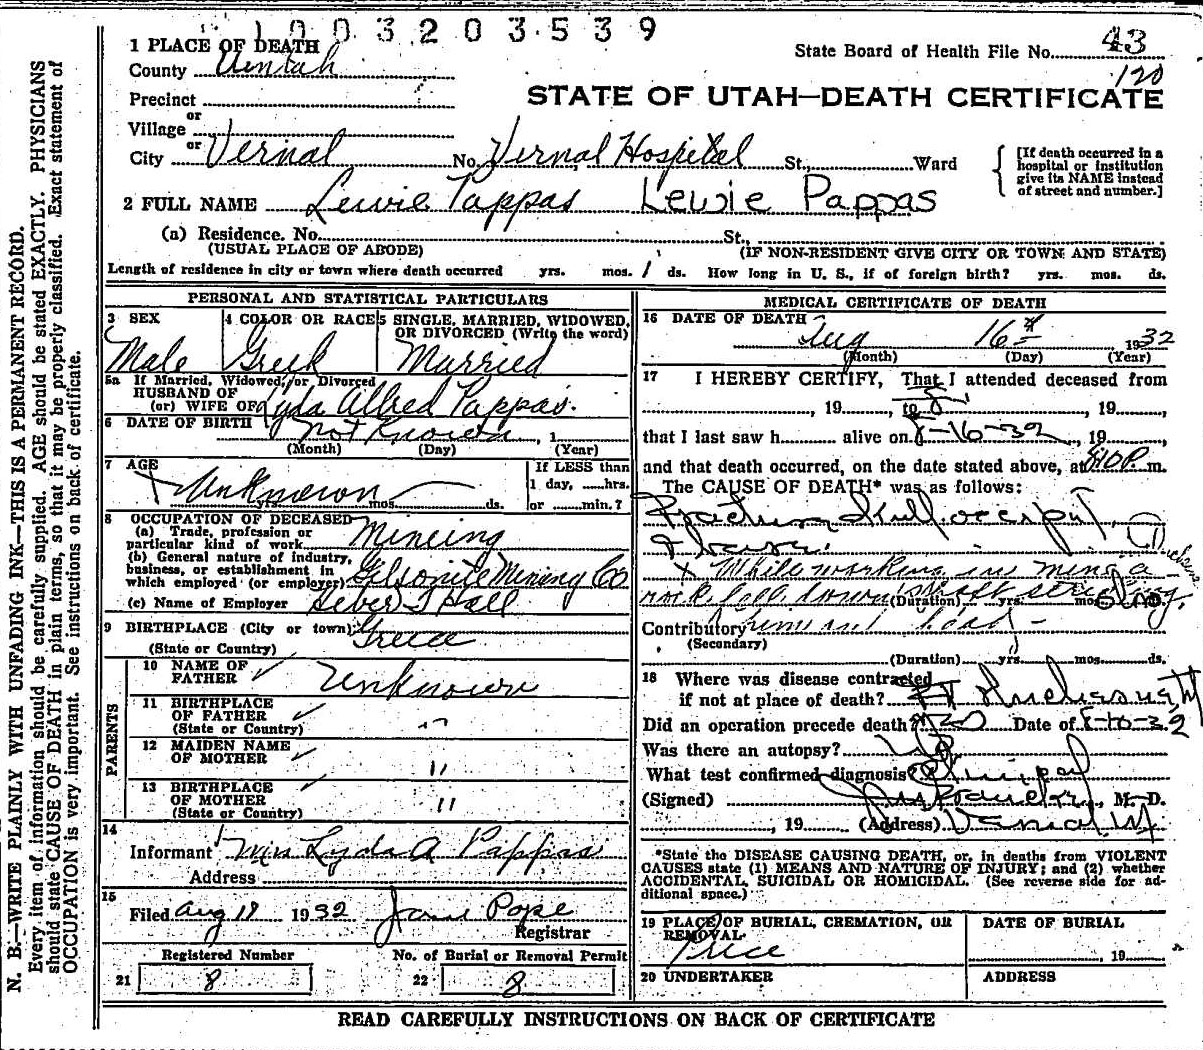 1003203539
1 PLACE OF DEATH
State Board of Health File No. 43
County Uintah
120
Precinct
STATE OF UTAH—DEATH CERTIFICATE
or
Village
or
City Vernal No. Vernal Hospital St., Ward
{ [If death occurred in a
hospital or institution
give its NAME instead
of street and number.]
2 FULL NAME Lewie Pappas Lewie Pappas
(a) Residence. No. St.,
(USUAL PLACE OF ABODE) (IF NON-RESIDENT GIVE CITY OR TOWN AND STATE)
Length of residence in city or town where death occurred yrs. mos. 1 ds. How long in U. S., if of foreign birth? yrs. mos. ds.
PERSONAL AND STATISTICAL PARTICULARS
3 SEX 4 COLOR OR RACE 5 SINGLE, MARRIED, WIDOWED,
OR DIVORCED (Write the word)
Male Greek Married
5a If Married, Widowed, or Divorced
HUSBAND OF
(or) WIFE OF Lyda Allred Pappas.
6 DATE OF BIRTH not Known, 1
(Month) (Day) (Year)
7 AGE If LESS than
Unknown 1 day, hrs.
yrs. mos. ds. or min.?
8 OCCUPATION OF DECEASED
(a) Trade, profession or
particular kind of work Mineing
(b) General nature of industry,
business, or establishment in
which employed (or employer) Gilsonite Mining Co
(c) Name of Employer Heber T Hall
9 BIRTHPLACE (City or town) Greece
(State or Country)
PARENTS
10 NAME OF
FATHER Unknown
11 BIRTHPLACE
OF FATHER "
(State or Country)
12 MAIDEN NAME
OF MOTHER "
13 BIRTHPLACE
OF MOTHER "
(State or Country)
14
Informant Mrs Lyda A Pappas
Address
15
Filed Aug 19 1932 Pope
Registrar
Registered Number No. of Burial or Removal Permit
21 8 22 8
MEDICAL CERTIFICATE OF DEATH
16 DATE OF DEATH
Aug 16 1932
(Month) (Day) (Year)
17 I HEREBY CERTIFY, That I attended deceased from
, 19 , to , 19 ,
that I last saw h alive on 8-16-32, 19 ,
and that death occurred, on the date stated above, at P. m.
The CAUSE OF DEATH* was as follows:
Fracture Skull occiput
While working in mine a
rock fell down shaft striking
(Duration) yrs. mos. ds.
Contributory head
(Secondary)
(Duration) yrs. mos. ds.
18 Where was disease contracted
if not at place of death? Ft Duchesne Ut
Did an operation precede death? no Date of 8-16-32
Was there an autopsy? no
What test confirmed diagnosis?
(Signed) , M. D.
, 19 (Address) Vernal Ut
*State the DISEASE CAUSING DEATH, or, in deaths from VIOLENT
CAUSES state (1) MEANS AND NATURE OF INJURY; and (2) whether
ACCIDENTAL, SUICIDAL OR HOMICIDAL. (See reverse side for ad-
ditional space.)
19 PLACE OF BURIAL, CREMATION, OR
REMOVAL DATE OF BURIAL
Price , 19
20 UNDERTAKER ADDRESS
READ CAREFULLY INSTRUCTIONS ON BACK OF CERTIFICATE
N. B.—WRITE PLAINLY WITH UNFADING INK—THIS IS A PERMANENT RECORD.
Every item of information should be carefully supplied. AGE should be stated EXACTLY. PHYSICIANS
should state CAUSE OF DEATH in plain terms, so that it may be properly classified. Exact statement of
OCCUPATION is very important. See instructions on back of certificate.